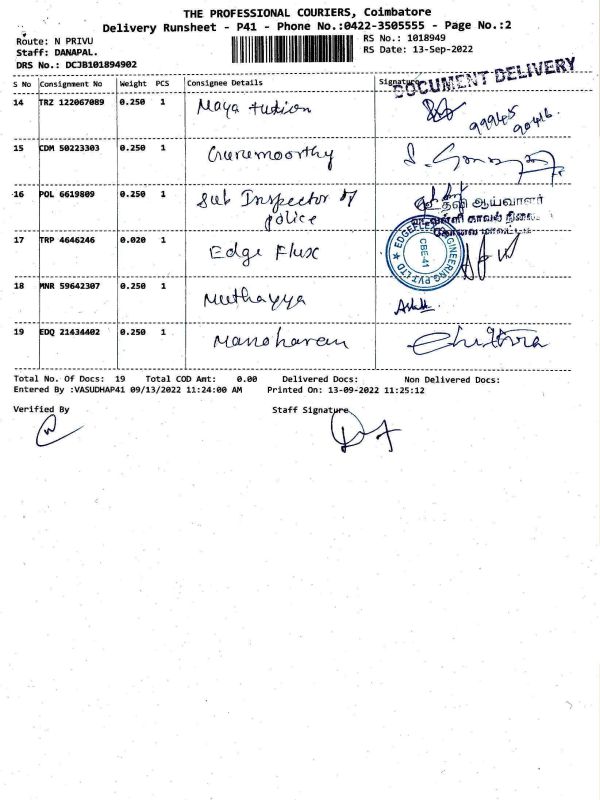 THE PROFESSIONAL COURIERS, Coimbatore
Delivery Runsheet - P41 - Phone No.:0422-3505555 - Page No.:2
Route: N PRIVU
RS No.: 1018949
Staff: DANAPAL.
RS Date: 13-Sep-2022
DRS No.: DCJB101894902
S No Consignment No Weight PCS Consignee Details Signature
DOCUMENT DELIVERY
14 TRZ 122067089 0.250 1 Maya tution
99945
90416
15 CDM 50223303 0.250 1 Gurumoorthy
16 POL 6619809 0.250 1 Sub Inspector of
police
உதவி ஆய்வாளர்
காவல் நிலை
17 TRP 4646246 0.020 1 Edge Flux
EDGEFLEX ENGINEERING PVT LTD
CBE-41
18 MNR 59642307 0.250 1 Muthayya
19 EDQ 21434402 0.250 1 Manoharan Chithra
Total No. Of Docs: 19 Total COD Amt: 0.00 Delivered Docs: Non Delivered Docs:
Entered By :VASUDHAP41 09/13/2022 11:24:00 AM Printed On: 13-09-2022 11:25:12
Verified By Staff Signature